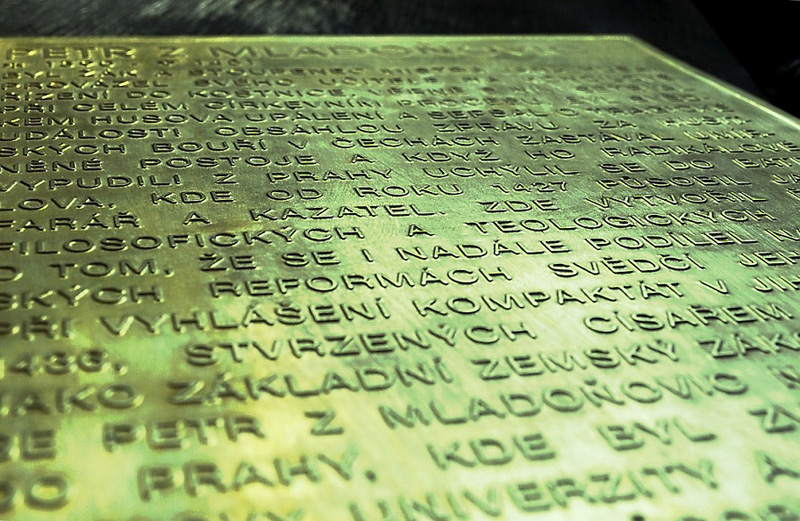 PETR Z MLADOŇOVIC
BYL ŽÁK A STOUPENEC MISTR
ZENÍ DO KOSTNICE
ŘI CELÉM CÍRKEVNÍM PROC
KEM HUSOVA UPÁLENÍ A SEPSAL O
UDÁLOSTI OBSÁHLOU ZPRÁVU. ZA HUSIT
SKÝCH BOUŘÍ V ČECHÁCH ZASTÁVAL UMÍR
NĚNÉ POSTOJE A KDYŽ HO RADIKÁLOVÉ
VYPUDILI Z PRAHY UCHÝLIL SE DO
LOVA, KDE OD ROKU 1427 PŮSOBIL JA
FARÁŘ A KAZATEL. ZDE VYTVOŘIL
FILOSOFICKÝCH A TEOLOGICKÝCH
O TOM, ŽE SE I NADÁLE PODÍLEL NA
SKÝCH REFORMÁCH SVĚDČÍ JEH
PŘI VYHLÁŠENÍ KOMPAKTÁT V JIH
1436, STVRZENÝCH CÍSAŘEM
JAKO ZÁKLADNÍ ZEMSKÝ ZÁKO
SE PETR Z MLADOŇOVIC
DO PRAHY, KDE BYL ZV
UNIVERZITY A